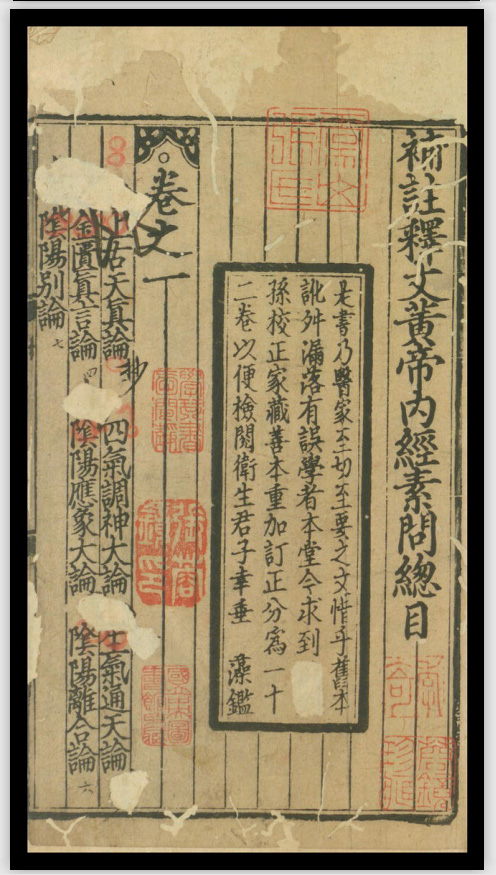 補註釋文黃帝內經素問總目
是書乃醫家至切至要之文惜乎舊本
訛舛漏落有誤學者本堂今求到
孫校正家藏善本重加訂正分爲一十
二卷以便檢閱衛生君子幸垂　藻鑑
卷之一
上古天眞論　四氣調神大論　生氣通天論
金匱眞言論四　陰陽應象大論　陰陽離合論六
陰陽別論七